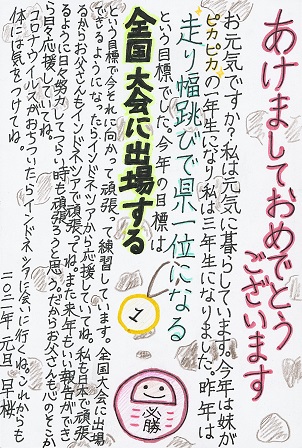 あけましておめでとう
ございます
お元気ですか?私は元気に暮らしています。今年は妹が
ピカピカの一年生になり、私は三年生になりました。昨年は
走り幅跳びで県一位になる
という目標でした。今年の目標は
全国大会に出場する
という目標で今それに向かって頑張って練習しています。全国大会に出場
できるようになったらインドネシアから応援していてね。私も日本で頑張
るからお父さんもインドネシアで頑張ってね。また来年もいい報告ができ
るように日々努力してつらい時も頑張ろうと思う。だからお父さんも心のそこか
ら日々応援していてね。
コロナウイルスがおちついたらインドネシアに会いに行くね。これからも
体には気をつけてね。
二〇二一年 元旦 早桜
1
必勝